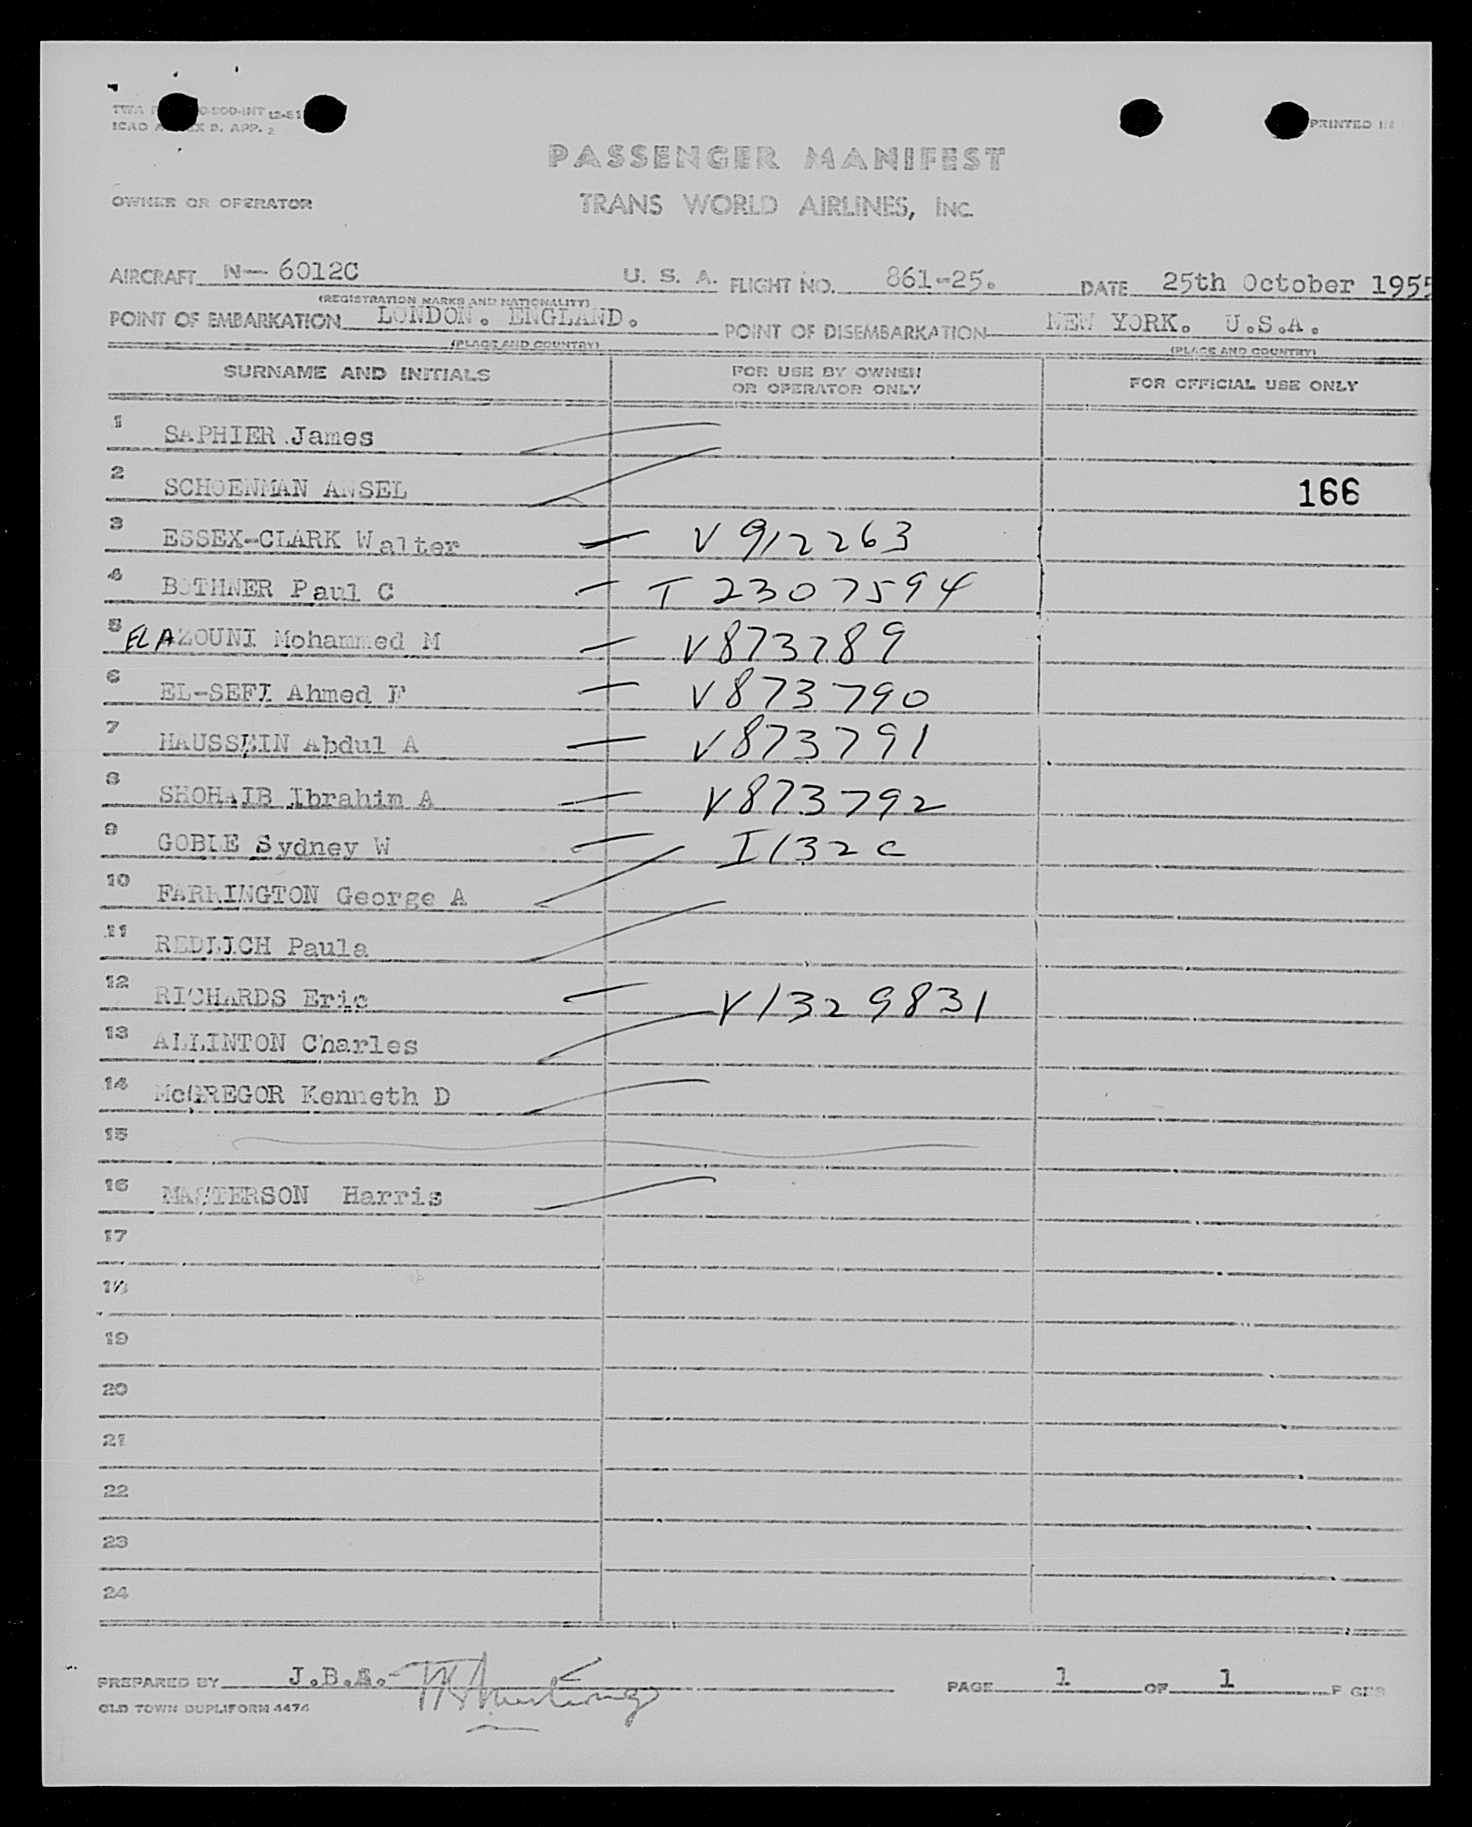 12-51
ICAO ANNEX 9. APP. 2
PRINTED IN
PASSENGER MANIFEST
OWNER OR OPERATOR
TRANS WORLD AIRLINES, INC.
AIRCRAFT N- 6012C U. S. A. FLIGHT NO. 861-25. DATE 25th October 1955
(REGISTRATION MARKS AND NATIONALITY)
POINT OF EMBARKATION LONDON. ENGLAND. POINT OF DISEMBARKATION NEW YORK. U.S.A.
(PLACE AND COUNTRY) (PLACE AND COUNTRY)
SURNAME AND INITIALS FOR USE BY OWNER OR OPERATOR ONLY FOR OFFICIAL USE ONLY
1 SAPHIER James
2 SCHOENMAN ANSEL 166
3 ESSEX-CLARK Walter — V 912263
4 BOTHNER Paul C — T 2307594
5 EL AZOUNI Mohammed M — V873789
6 EL-SEFI Ahmed F — V873790
7 HAUSSEIN Abdul A — V873791
8 SHOHAIB Ibrahim A — V873792
9 GOBLE Sydney W — I132C
10 FARRINGTON George A
11 REDLICH Paula
12 RICHARDS Eric — V1329831
13 ALLINTON Charles
14 McGREGOR Kenneth D
15
16 MASTERSON Harris
17
18
19
20
21
22
23
24
PREPARED BY J.B.A.- PAGE 1 OF 1 PAGES
OLD TOWN DUPLIFORM 4474